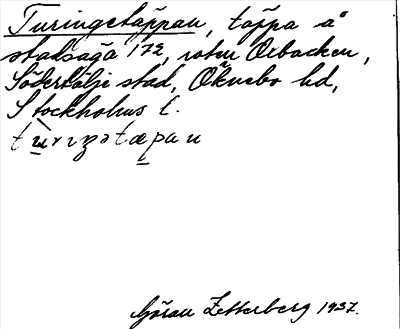 Turingetäppan, täppa å
stadsäga 172, roten Oxbacken,
Södertälje stad, Öknebo hd,
Stockholms l.
tùriŋətæpan
Göran Zetterberg 1937.